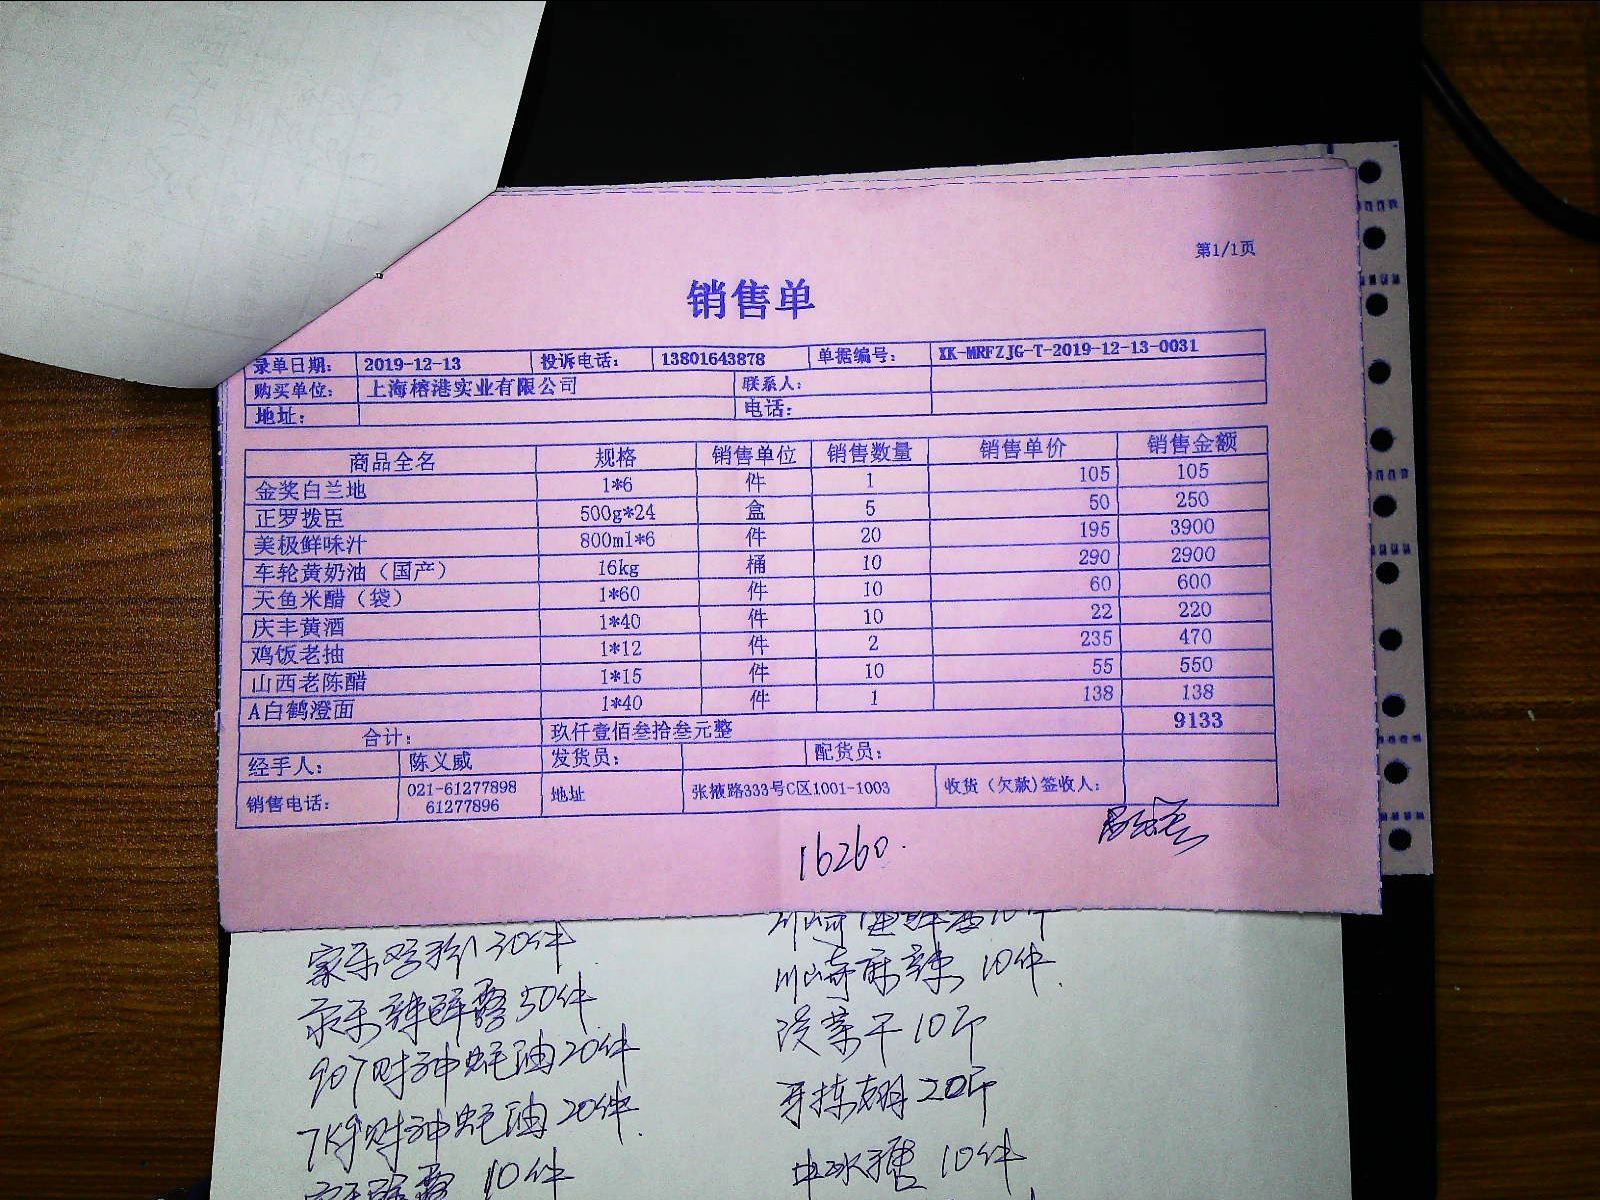 第1/1页
销售单
录单日期: 2019-12-13 投诉电话: 13801643878 单据编号: XK-MRFZJG-T-2019-12-13-0031
购买单位: 上海榕港实业有限公司 联系人:
地址: 电话:
商品全名 规格 销售单位 销售数量 销售单价 销售金额
金奖白兰地 1*6 件 1 105 105
正罗拨臣 500g*24 盒 5 50 250
美极鲜味汁 800ml*6 件 20 195 3900
车轮黄奶油（国产） 16kg 桶 10 290 2900
天鱼米醋（袋） 1*60 件 10 60 600
庆丰黄酒 1*40 件 10 22 220
鸡饭老抽 1*12 件 2 235 470
山西老陈醋 1*15 件 10 55 550
A白鹤澄面 1*40 件 1 138 138
合计: 玖仟壹佰叁拾叁元整 9133
经手人: 陈义威 发货员: 配货员:
销售电话: 021-61277898 61277896 地址 张掖路333号C区1001-1003 收货（欠款)签收人:
16260.
家乐鸡粉 30件
家乐辣鲜露50件
907财神蚝油20件
7K财神蚝油20件
10件
川崎麻辣 10件
菜干10斤
20斤
冰糖 10件